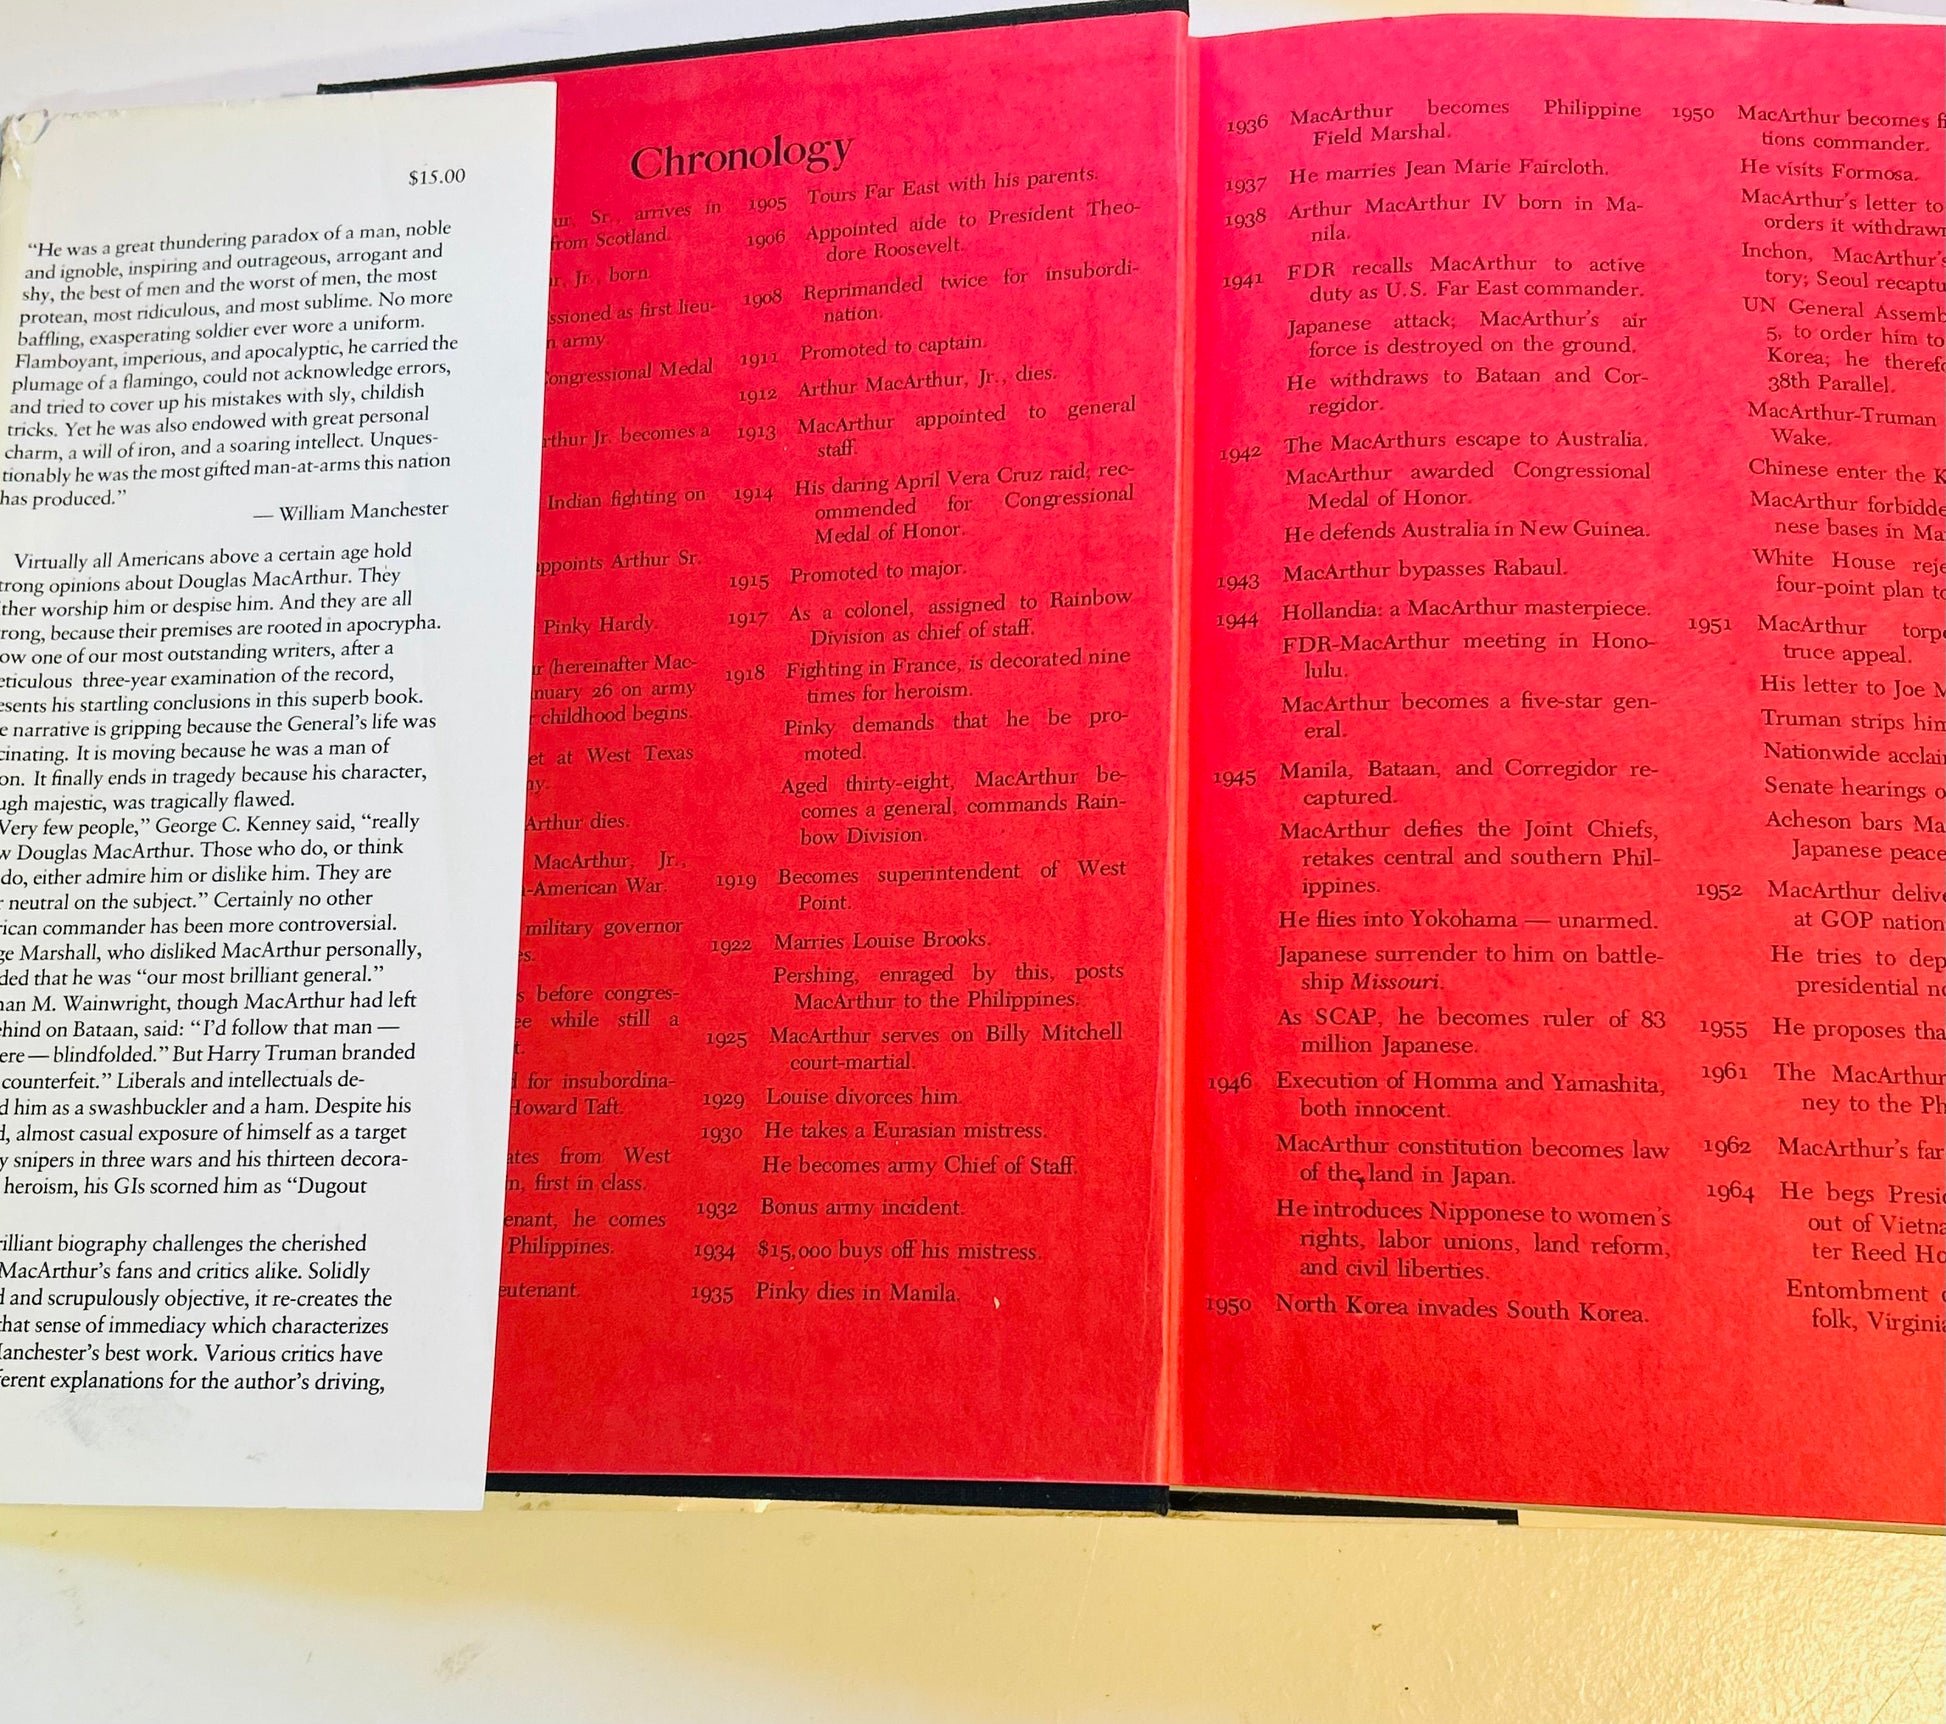 $15.00
“He was a great thundering paradox of a man, noble
and ignoble, inspiring and outrageous, arrogant and
shy, the best of men and the worst of men, the most
protean, most ridiculous, and most sublime. No more
baffling, exasperating soldier ever wore a uniform.
Flamboyant, imperious, and apocalyptic, he carried the
plumage of a flamingo, could not acknowledge errors,
and tried to cover up his mistakes with sly, childish
tricks. Yet he was also endowed with great personal
charm, a will of iron, and a soaring intellect. Unques-
tionably he was the most gifted man-at-arms this nation
has produced.”
— William Manchester
Virtually all Americans above a certain age hold
trong opinions about Douglas MacArthur. They
ther worship him or despise him. And they are all
rong, because their premises are rooted in apocrypha.
ow one of our most outstanding writers, after a
eticulous three-year examination of the record,
esents his startling conclusions in this superb book.
e narrative is gripping because the General’s life was
cinating. It is moving because he was a man of
on. It finally ends in tragedy because his character,
ugh majestic, was tragically flawed.
Very few people,” George C. Kenney said, “really
w Douglas MacArthur. Those who do, or think
do, either admire him or dislike him. They are
r neutral on the subject.” Certainly no other
rican commander has been more controversial.
ge Marshall, who disliked MacArthur personally,
ded that he was “our most brilliant general.”
nan M. Wainwright, though MacArthur had left
ehind on Bataan, said: “I’d follow that man —
ere — blindfolded.” But Harry Truman branded
counterfeit.” Liberals and intellectuals de-
d him as a swashbuckler and a ham. Despite his
d, almost casual exposure of himself as a target
y snipers in three wars and his thirteen decora-
heroism, his GIs scorned him as “Dugout
rilliant biography challenges the cherished
MacArthur’s fans and critics alike. Solidly
d and scrupulously objective, it re-creates the
that sense of immediacy which characterizes
Manchester’s best work. Various critics have
ferent explanations for the author’s driving,
Chronology
ur, Sr., arrives in
from Scotland.
r, Jr., born.
ssioned as first lieu-
n army.
Congressional Medal
rthur Jr. becomes a
Indian fighting on
appoints Arthur Sr.
Pinky Hardy.
r (hereinafter Mac-
nuary 26 on army
r childhood begins.
et at West Texas
ny.
Arthur dies.
MacArthur, Jr.,
-American War.
military governor
es.
s before congres-
ee while still a
t.
d for insubordina-
Howard Taft.
ates from West
n, first in class.
enant, he comes
Philippines.
eutenant.
1905 Tours Far East with his parents.
1906 Appointed aide to President Theo-
dore Roosevelt.
1908 Reprimanded twice for insubordi-
nation.
1911 Promoted to captain.
1912 Arthur MacArthur, Jr., dies.
1913 MacArthur appointed to general
staff.
1914 His daring April Vera Cruz raid; rec-
ommended for Congressional
Medal of Honor.
1915 Promoted to major.
1917 As a colonel, assigned to Rainbow
Division as chief of staff.
1918 Fighting in France, is decorated nine
times for heroism.
Pinky demands that he be pro-
moted.
Aged thirty-eight, MacArthur be-
comes a general, commands Rain-
bow Division.
1919 Becomes superintendent of West
Point.
1922 Marries Louise Brooks.
Pershing, enraged by this, posts
MacArthur to the Philippines.
1925 MacArthur serves on Billy Mitchell
court-martial.
1929 Louise divorces him.
1930 He takes a Eurasian mistress.
He becomes army Chief of Staff.
1932 Bonus army incident.
1934 $15,000 buys off his mistress.
1935 Pinky dies in Manila.
1936 MacArthur becomes Philippine
Field Marshal.
1937 He marries Jean Marie Faircloth.
1938 Arthur MacArthur IV born in Ma-
nila.
1941 FDR recalls MacArthur to active
duty as U.S. Far East commander.
Japanese attack; MacArthur’s air
force is destroyed on the ground.
He withdraws to Bataan and Cor-
regidor.
1942 The MacArthurs escape to Australia.
MacArthur awarded Congressional
Medal of Honor.
He defends Australia in New Guinea.
1943 MacArthur bypasses Rabaul.
1944 Hollandia: a MacArthur masterpiece.
FDR-MacArthur meeting in Hono-
lulu.
MacArthur becomes a five-star gen-
eral.
1945 Manila, Bataan, and Corregidor re-
captured.
MacArthur defies the Joint Chiefs,
retakes central and southern Phil-
ippines.
He flies into Yokohama — unarmed.
Japanese surrender to him on battle-
ship Missouri.
As SCAP, he becomes ruler of 83
million Japanese.
1946 Execution of Homma and Yamashita,
both innocent.
MacArthur constitution becomes law
of the land in Japan.
He introduces Nipponese to women’s
rights, labor unions, land reform,
and civil liberties.
1950 North Korea invades South Korea.
1950 MacArthur becomes fi
tions commander.
He visits Formosa.
MacArthur’s letter to
orders it withdrawn
Inchon, MacArthur’s
tory; Seoul recaptu
UN General Assemb
5, to order him to
Korea; he therefo
38th Parallel.
MacArthur-Truman
Wake.
Chinese enter the K
MacArthur forbidde
nese bases in Ma
White House reje
four-point plan to
1951 MacArthur torpe
truce appeal.
His letter to Joe M
Truman strips him
Nationwide acclai
Senate hearings o
Acheson bars Ma
Japanese peace
1952 MacArthur delive
at GOP nation
He tries to dep
presidential no
1955 He proposes tha
1961 The MacArthur
ney to the Ph
1962 MacArthur’s far
1964 He begs Presid
out of Vietna
ter Reed Ho
Entombment o
folk, Virginia